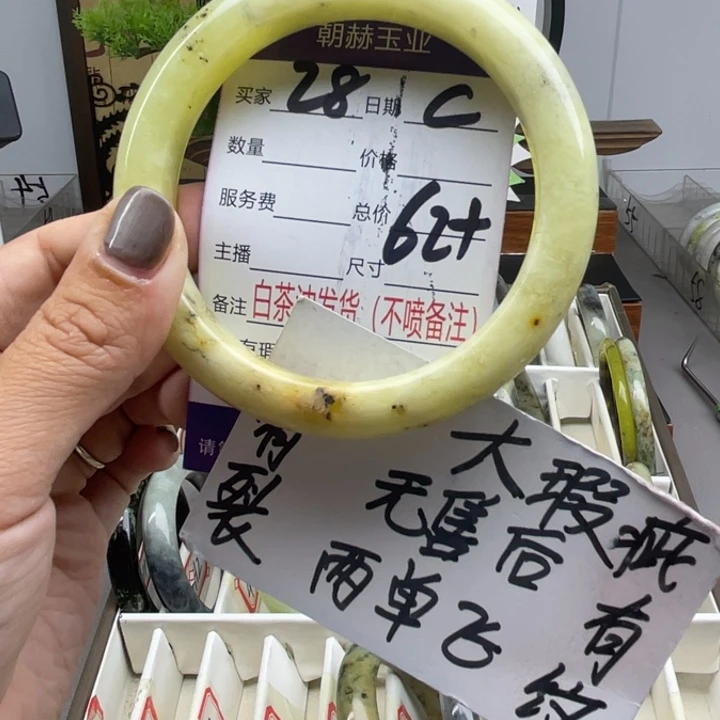 朝赫玉业
买家 28 日期 C
数量 价格
服务费 总价 62+
主播 尺寸
备注 白茶冲发货(不喷备注)
有瑕
请
有裂
大瑕疵
无售后
两单飞
有纹